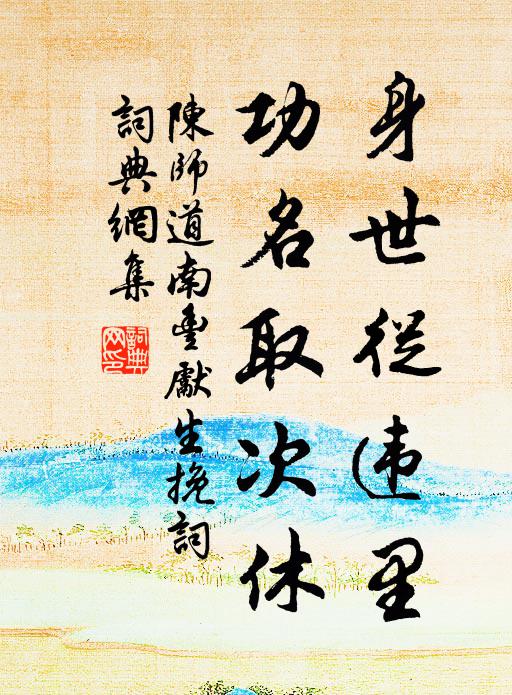 身世從违里
功名取次休
陳師道南豊獻生挽詞
詞典網集
詞典網印